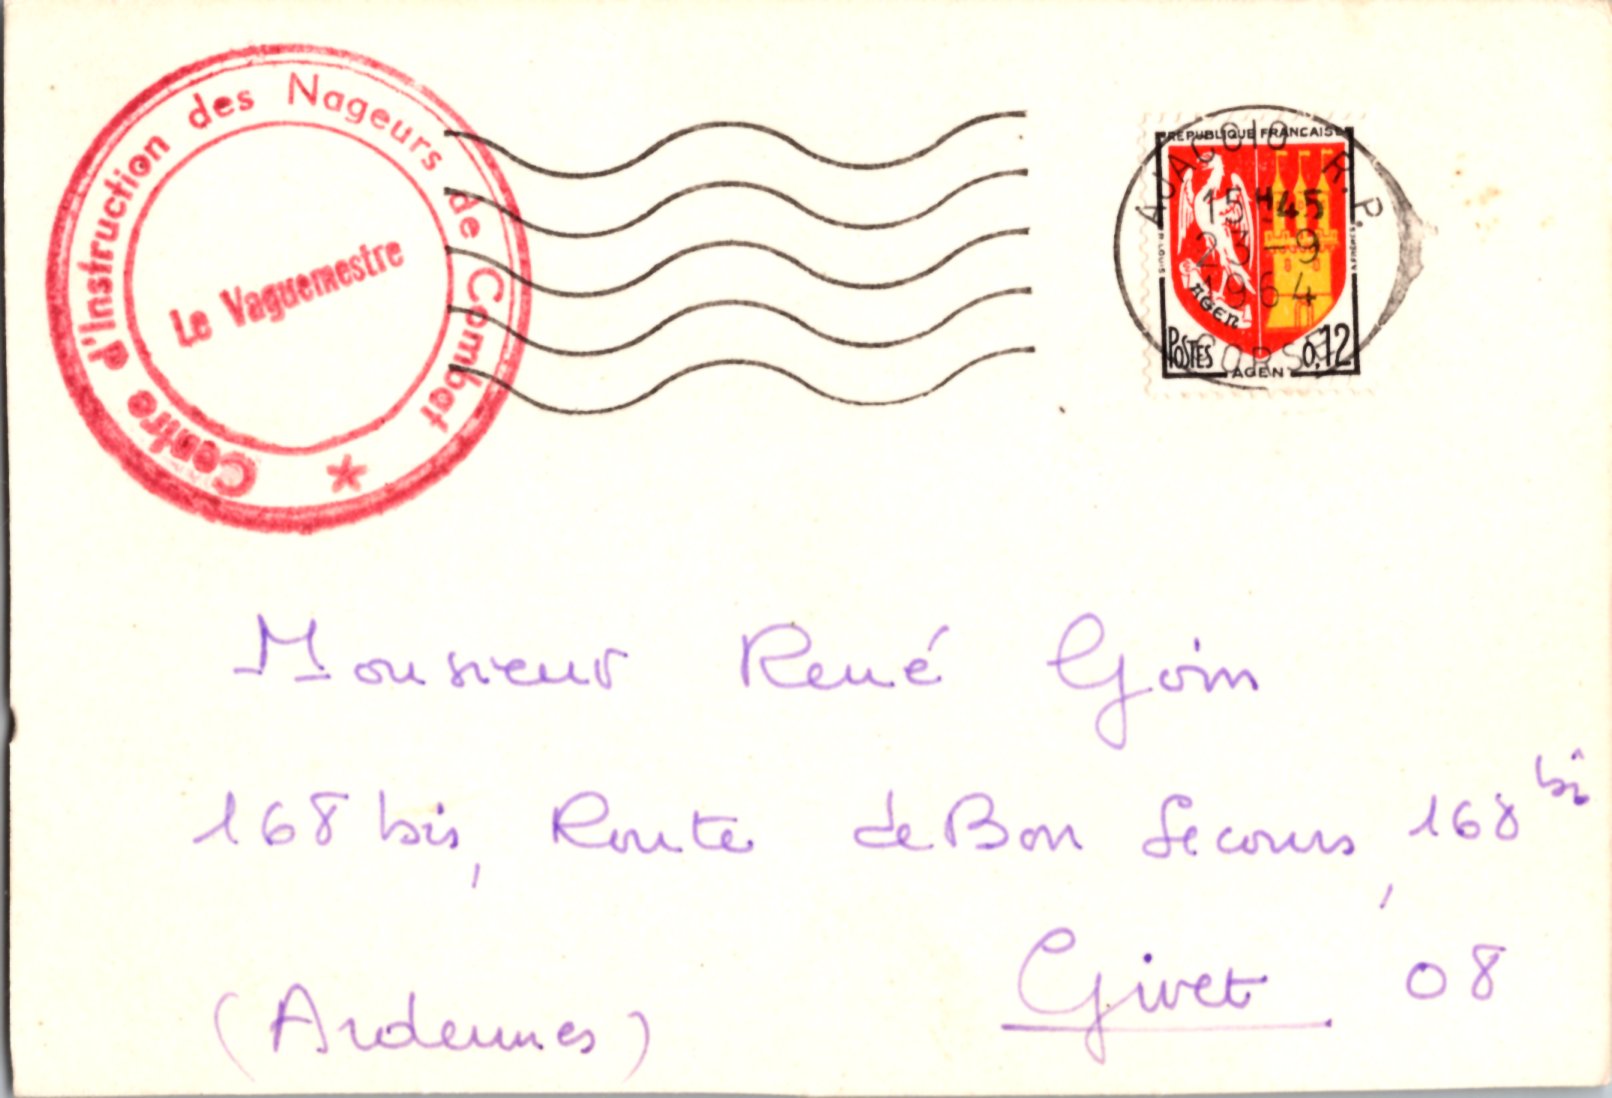 Centre d'Instruction des Nageurs de Combat
Le Vaguemestre
REPUBLIQUE FRANCAISE
AJACCIO R.P.
15H45
23-9
1964
CORSE
AGEN
POSTES 0,12
AGEN
Monsieur René Goin
168 bis, Route de Bon Secours, 168 bis
Givet 08
(Ardennes)